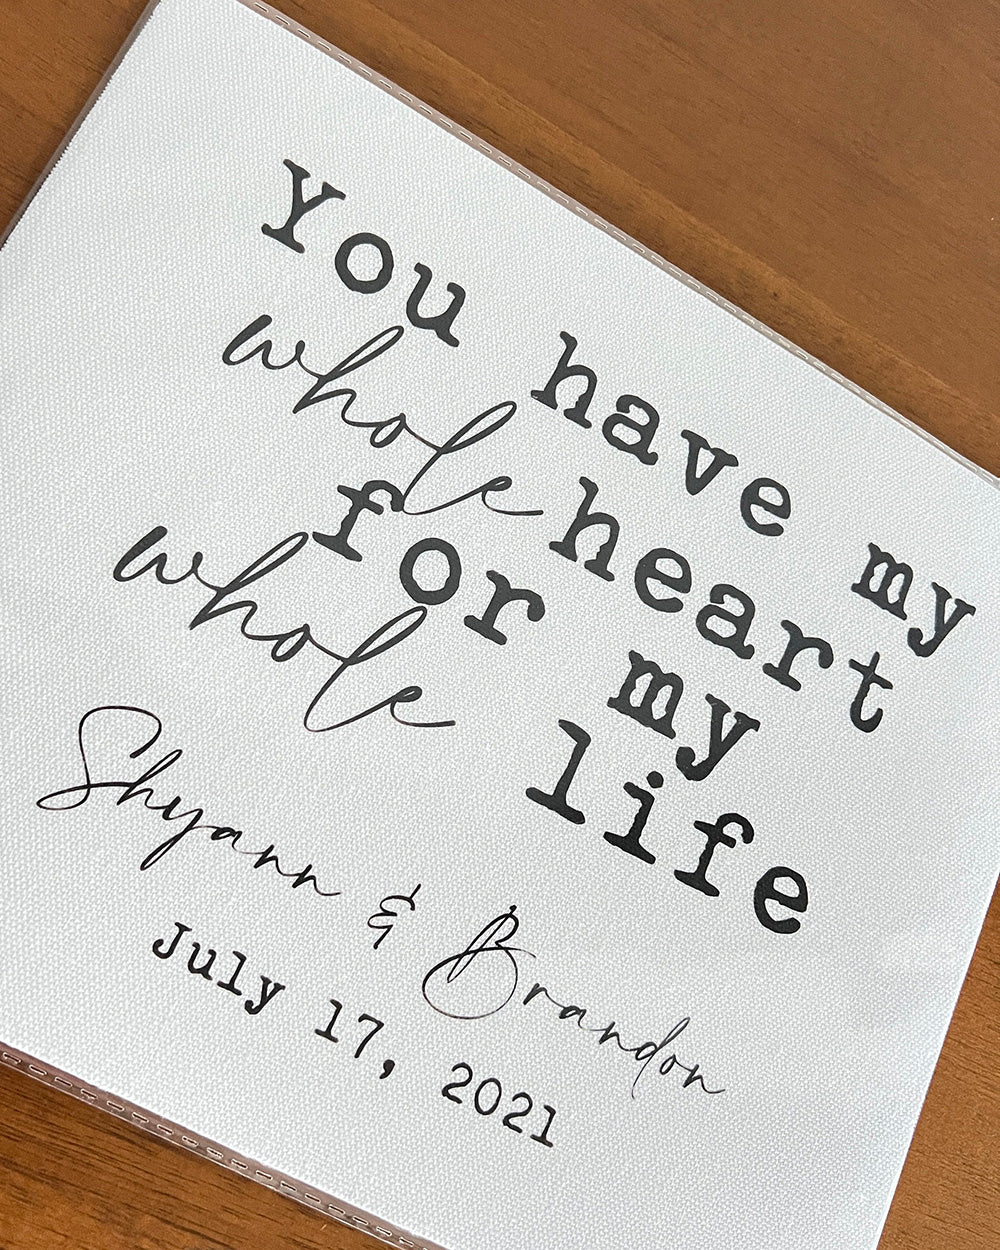 You have my
whole heart
for my
whole life
Shyann & Brandon
July 17, 2021